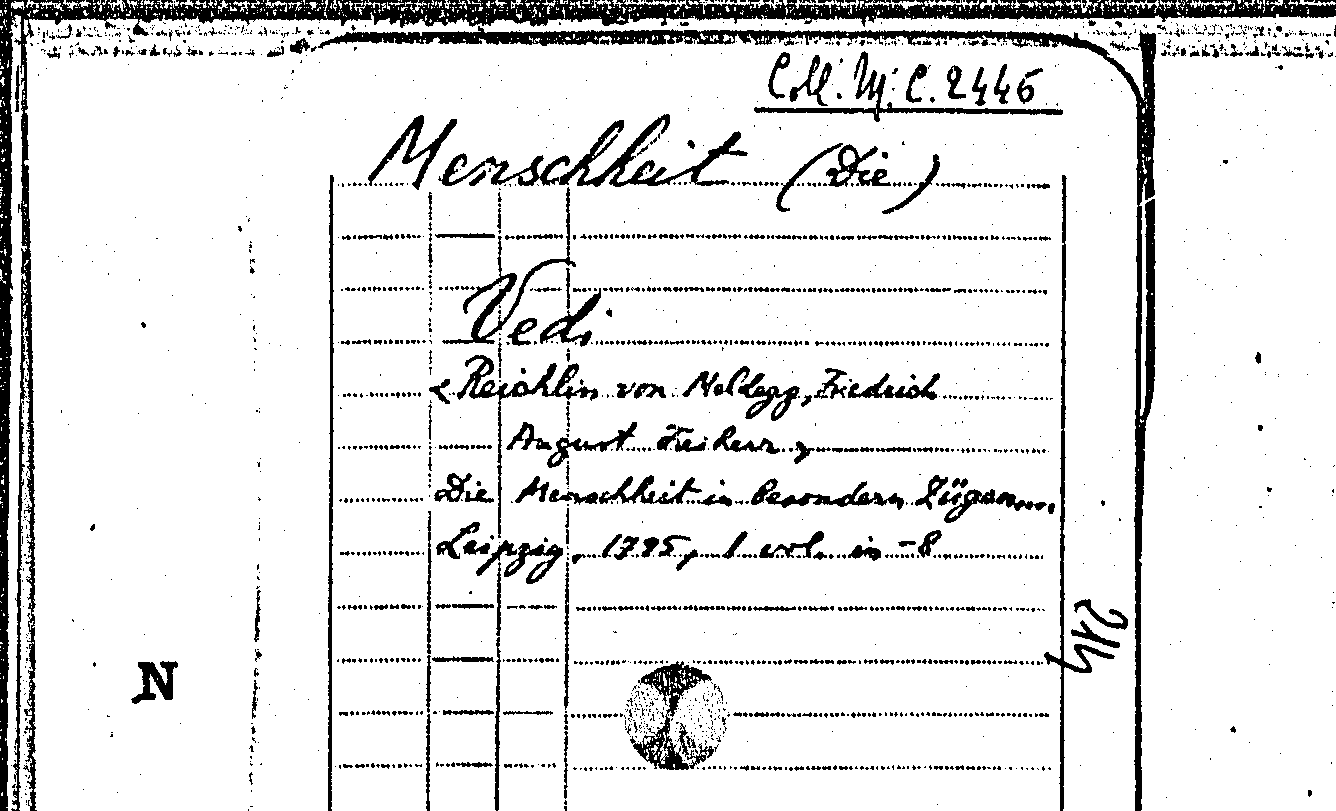 Coll. M. C. 2446
Menschheit (Die)
Vedi
< Reichlin von Meldegg, Friedrich
August Freiherr >
Die Menschheit in besondern Zügen....
Leipzig, 1785, 1 vol. in -8
N